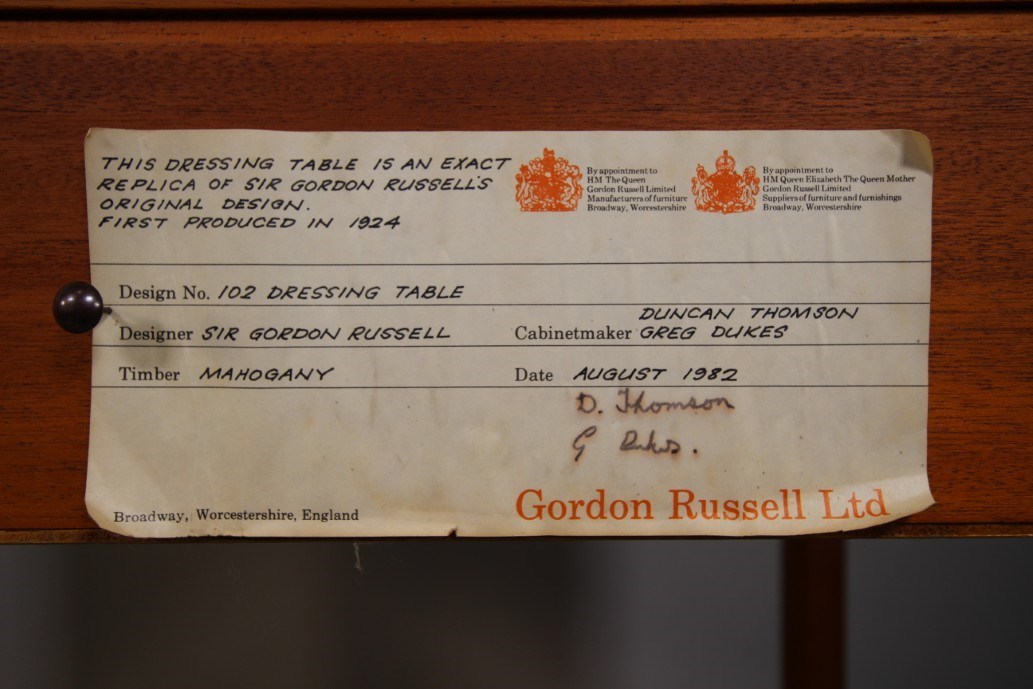 THIS DRESSING TABLE IS AN EXACT
REPLICA OF SIR GORDON RUSSELL'S
ORIGINAL DESIGN.
FIRST PRODUCED IN 1924
By appointment to
HM The Queen
Gordon Russell Limited
Manufacturers of furniture
Broadway, Worcestershire
By appointment to
HM Queen Elizabeth The Queen Mother
Gordon Russell Limited
Suppliers of furniture and furnishings
Broadway, Worcestershire
Design No. 102 DRESSING TABLE
Designer SIR GORDON RUSSELL
DUNCAN THOMSON
Cabinetmaker GREG DUKES
Timber MAHOGANY
Date AUGUST 1982
D. Thomson
G Dukes.
Broadway, Worcestershire, England
Gordon Russell Ltd